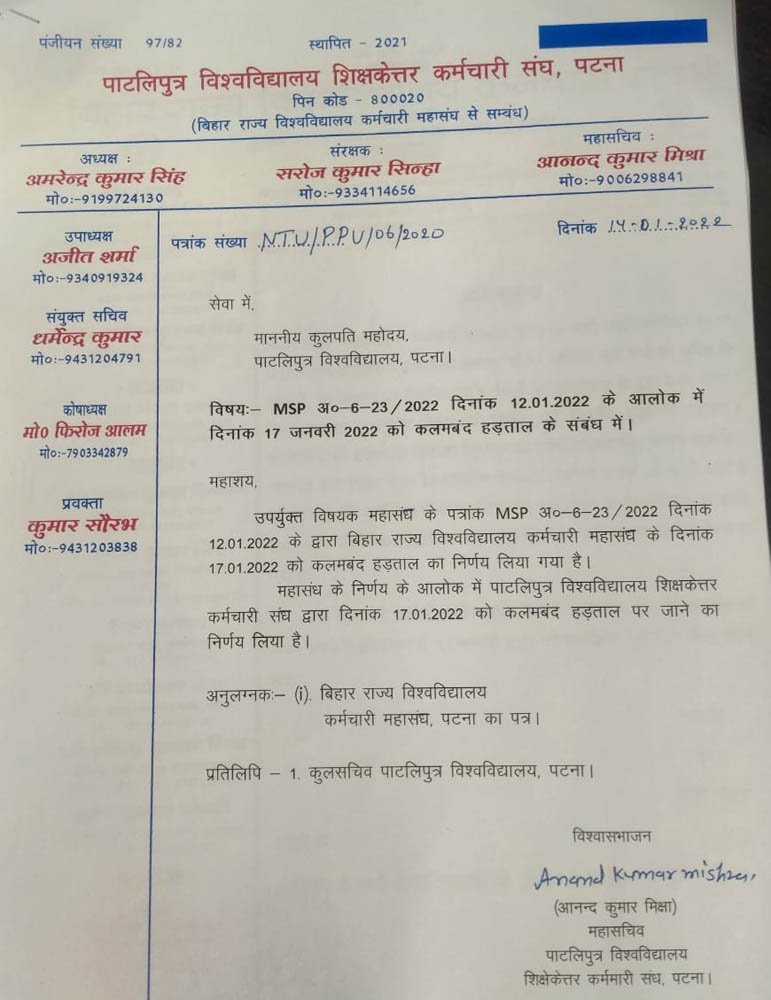 पंजीयन संख्या 97/82
स्थापित - 2021
पाटलिपुत्र विश्वविद्यालय शिक्षकेत्तर कर्मचारी संघ, पटना
पिन कोड - 800020
(बिहार राज्य विश्वविद्यालय कर्मचारी महासंघ से सम्बंध)
अध्यक्ष :
अमरेन्द्र कुमार सिंह
मो०:-9199724130
संरक्षक :
सरोज कुमार सिन्हा
मो०:-9334114656
महासचिव :
आनन्द कुमार मिश्रा
मो०:-9006298841
उपाध्यक्ष
अजीत शर्मा
मो०:-9340919324
संयुक्त सचिव
धर्मेन्द्र कुमार
मो०:-9431204791
कोषाध्यक्ष
मो० फिरोज आलम
मो०:-7903342879
प्रवक्ता
कुमार सौरभ
मो०:-9431203838
पत्रांक संख्या N.T.U/P.P.U/06/2020
दिनांक 14-01-2022
सेवा में,
माननीय कुलपति महोदय,
पाटलिपुत्र विश्वविद्यालय, पटना।
विषयः– MSP अ०–6–23/2022 दिनांक 12.01.2022 के आलोक में
दिनांक 17 जनवरी 2022 को कलमबंद हड़ताल के संबंध में।
महाशय,
उपर्युक्त विषयक महासंघ के पत्रांक MSP अ०–6–23/2022 दिनांक
12.01.2022 के द्वारा बिहार राज्य विश्वविद्यालय कर्मचारी महासंघ के दिनांक
17.01.2022 को कलमबंद हड़ताल का निर्णय लिया गया है।
महासंघ के निर्णय के आलोक में पाटलिपुत्र विश्वविद्यालय शिक्षकेत्तर
कर्मचारी संघ द्वारा दिनांक 17.01.2022 को कलमबंद हड़ताल पर जाने का
निर्णय लिया है।
अनुलग्नकः– (i). बिहार राज्य विश्वविद्यालय
कर्मचारी महासंघ, पटना का पत्र।
प्रतिलिपि – 1. कुलसचिव पाटलिपुत्र विश्वविद्यालय, पटना।
विश्वासभाजन
Anand Kumar mishra
(आनन्द कुमार मिक्षा)
महासचिव
पाटलिपुत्र विश्वविद्यालय
शिक्षेकेत्तर कर्ममारी संघ, पटना।